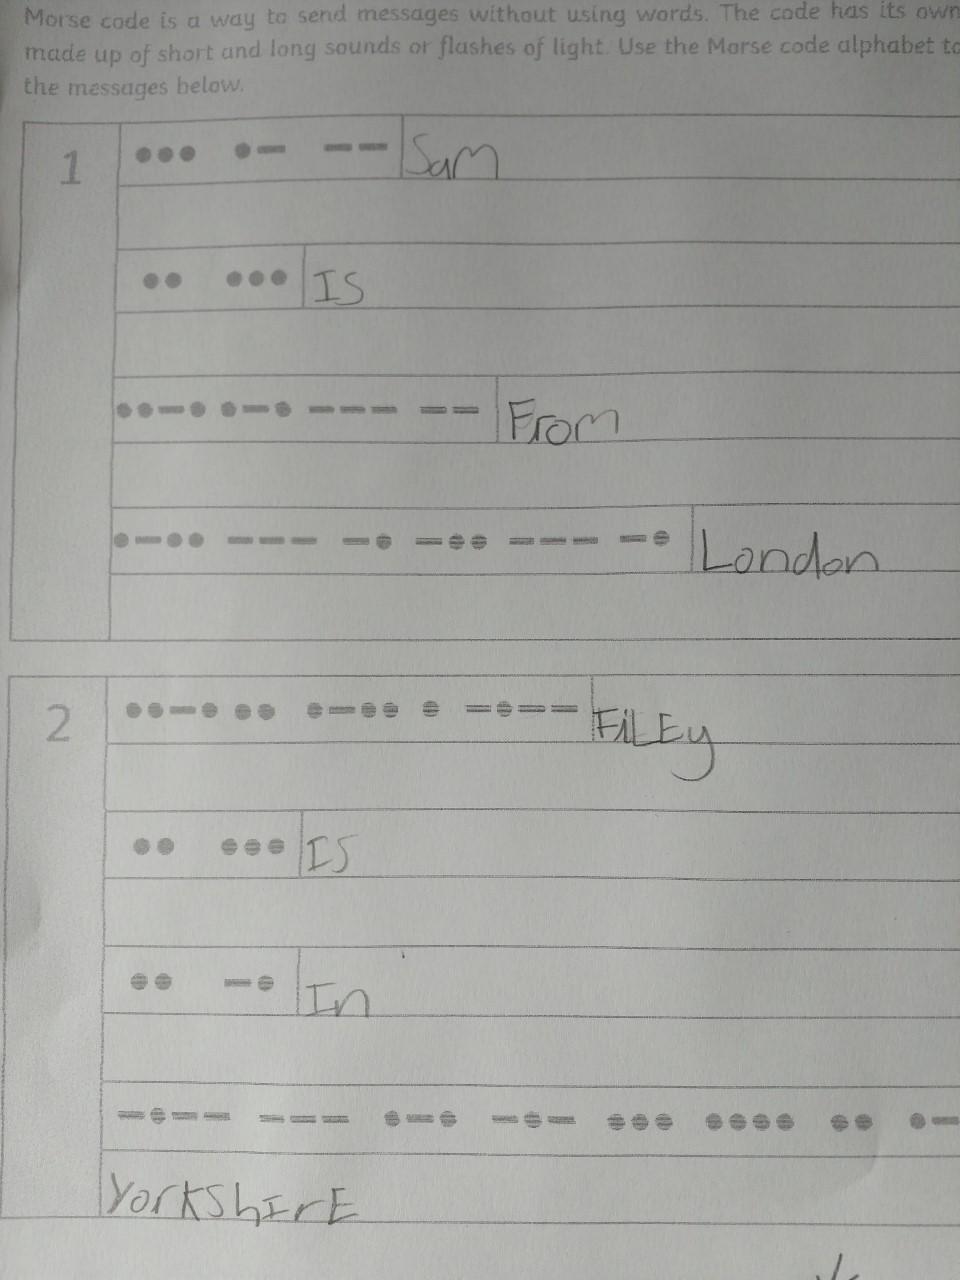 Morse code is a way to send messages without using words. The code has its own
made up of short and long sounds or flashes of light. Use the Morse code alphabet to
the messages below.
1 ●●● ●— —— Sam
●● ●●● IS
●●—● ●—● ——— —— From
●—●● ——— —● —●● ——— —● London
2 ●●—● ●● ●—●● ● —●—— FiLEy
●● ●●● IS
●● —● In
—●—— ——— ●—● —●— ●●● ●●●● ●● ●—
YorkShIrE